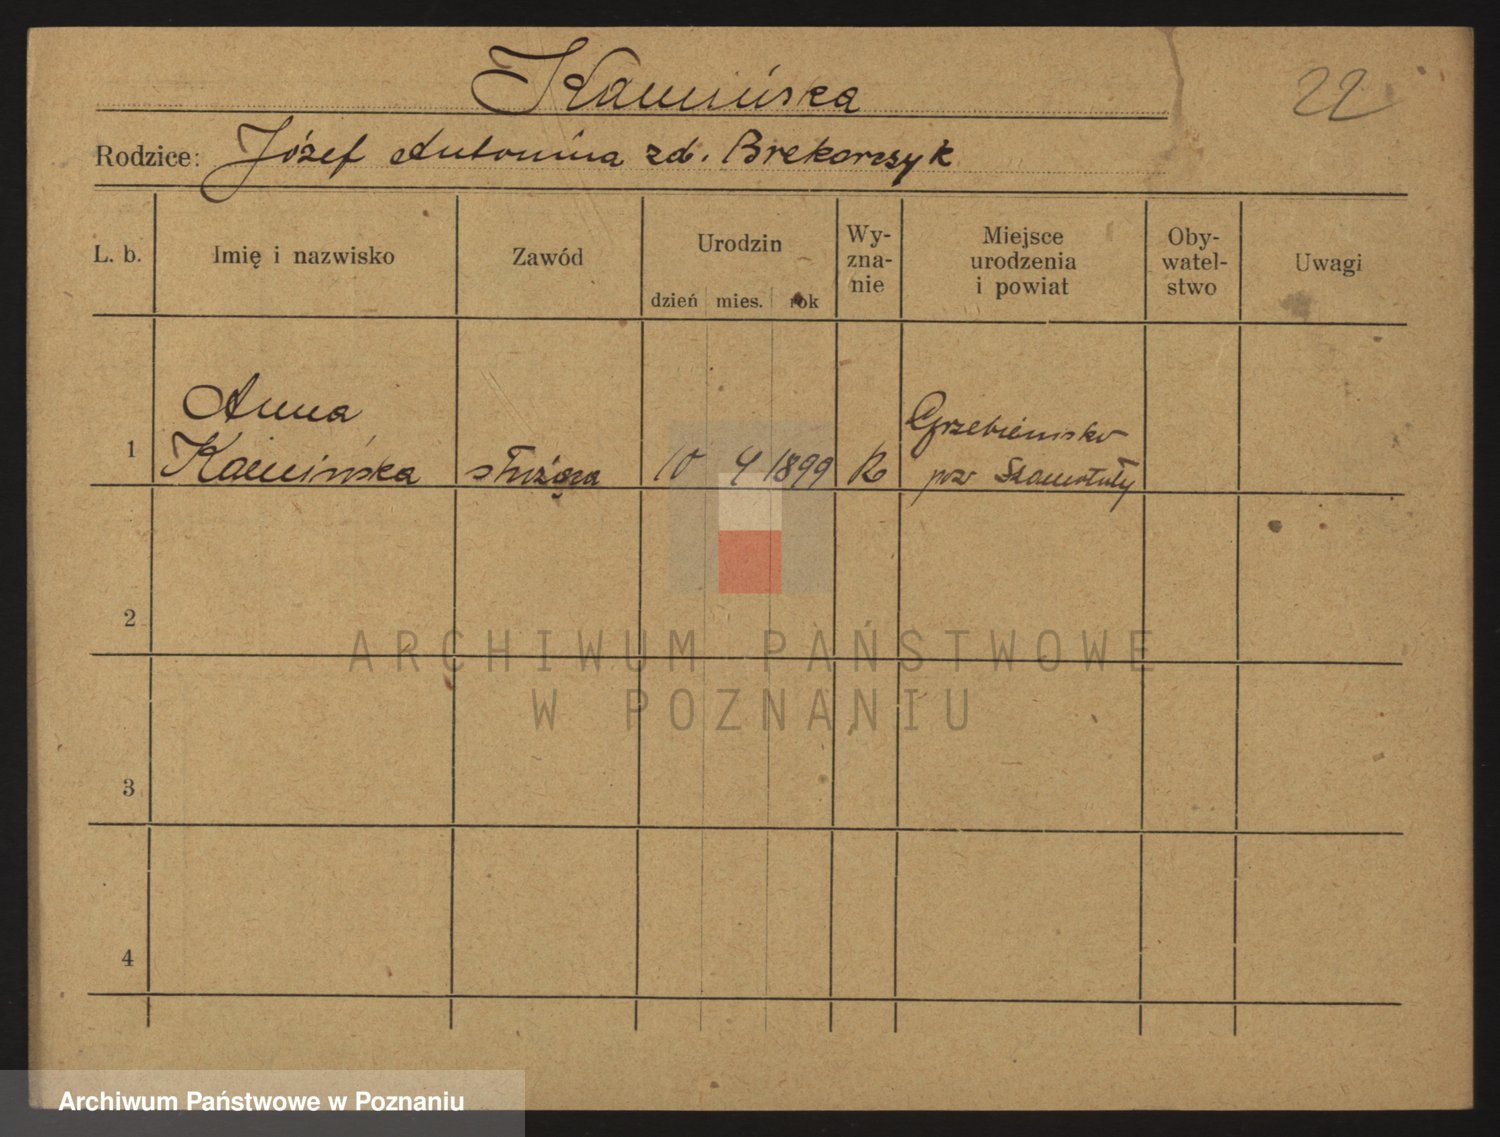 Kamińska
22
Rodzice: Józef Antonina zd. Brekorczyk
L. b. Imię i nazwisko Zawód Urodzin Wy-zna-nie Miejsce urodzenia i powiat Oby-watel-stwo Uwagi
dzień mies. rok
1 Anna Kamińska służąca 10 4 1899 R Grzebienisko pow Szamotuły
2
ARCHIWUM PAŃSTWOWE
W POZNANIU
3
4
Archiwum Państwowe w Poznaniu